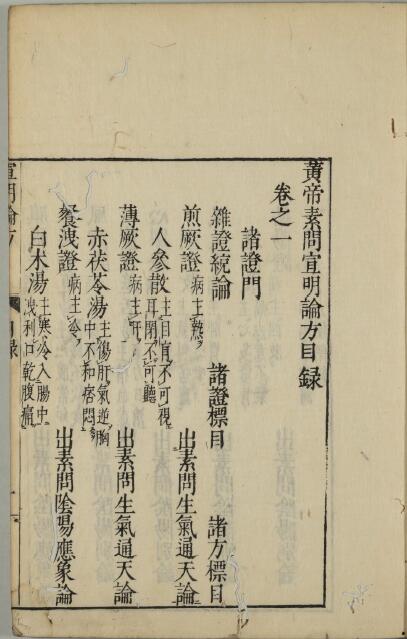 黄帝素問宣明論方目録
卷之一
諸證門
雜證統論 諸證標目 諸方標目
煎厥證 病主熱 出素問生氣通天論
人參散 主目盲不可視耳閉不可聽
薄厥證 病主肝 出素問生氣通天論
赤茯苓湯 主傷肝氣逆胸中不和痞悶
飱洩證 病主冷 出素問陰陽應象論
白术湯 主寒冷入腸中洩利口乾腹痛
宣明論方 目録